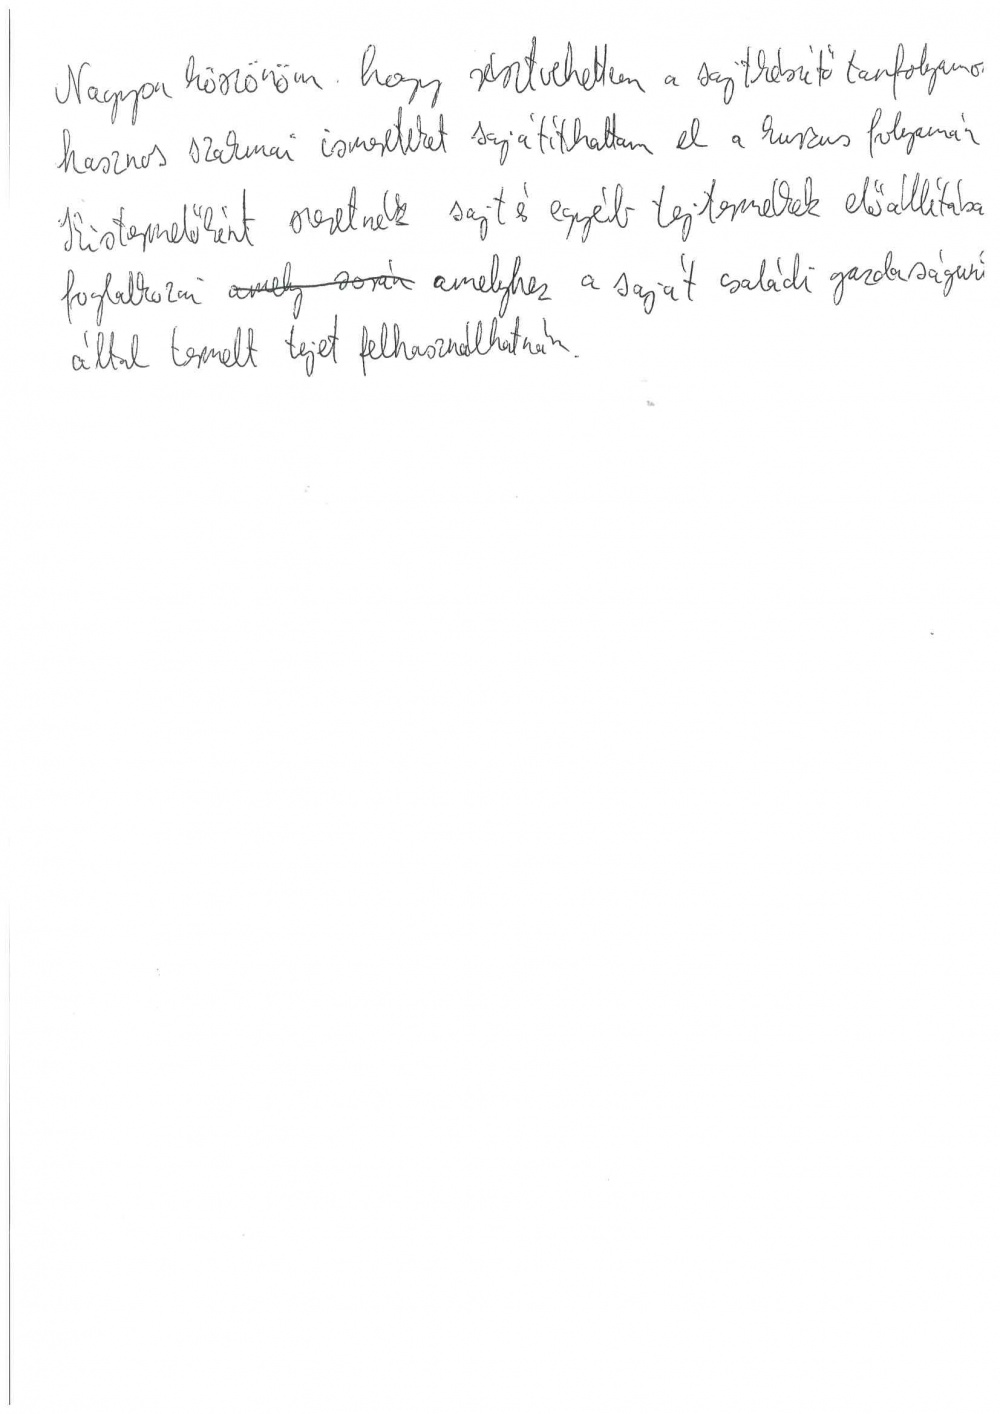 Nagyon köszönöm. hogy résztvehettem a sajtkészítő tanfolyamo
hasznos szakmai ismereteket sajátíthattam el a kurzus folyamán
Kistermelőként szeretnék sajt és egyéb tejtermékek előállításba
foglalkozni amely során amelyhez a saját családi gazdaságunk
által termelt tejet felhasználhatnám.